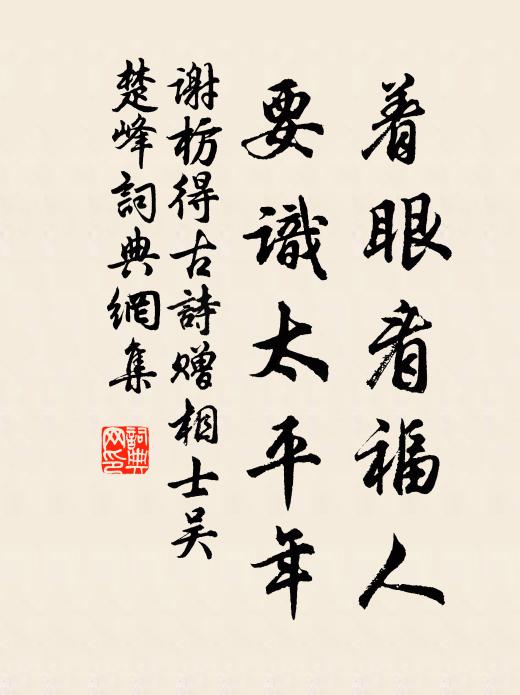 着眼看福人
要識太平年
谢枋得古詩赠相士吴
楚峰詞典網集
詞典
网印